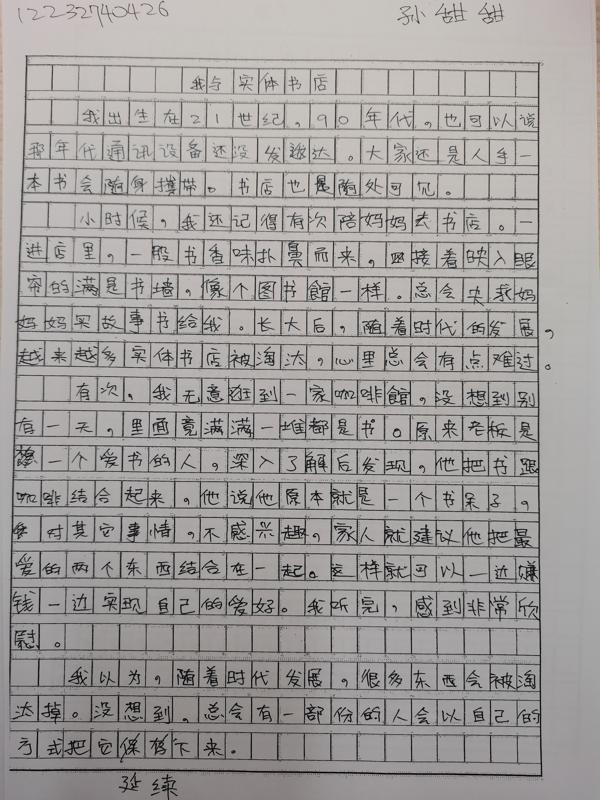 12232740426 孙甜甜
我与实体书店
我出生在21世纪,90年代,也可以说
那年代通讯设备还没发达。大家还是人手一
本书会随身携带。书店也是随处可见。
小时候,我还记得有次陪妈妈去书店。一
进店里,一股书香味扑鼻而来,接着映入眼
帘的满是书墙。像个图书館一样。总会央求妈
妈妈买故事书给我。长大后,随着时代的发展,
越来越多实体书店被淘汰,心里总会有点难过。
有次,我无意逛到一家咖啡館,没想到别
有一天,里面竟满满一堆都是书。原来老板是
一个爱书的人,深入了解后发现,他把书跟
咖啡结合起来,他说他原本就是一个书呆子,
对其它事情,不感兴趣,家人就建议他把最
爱的两个东西结合在一起。这样就可以一边嫌
钱一边实现自己的爱好。我听完,感到非常欣
慰。
我以为,随着时代发展,很多东西会被淘
汰掉。没想到,总会有一部份的人会以自己的
方式把它保存下来。
延续